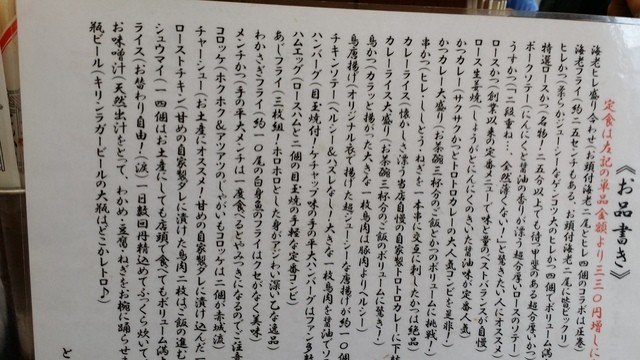 《お品書き》
定食は左記の単品金額より三三〇円増しに
海老ヒレ盛り合わせ(お頭付海老二尾とヒレ四個のコラボは圧巻
海老フライ(約二五センチもある、お頭付海老二尾に皆ビックリ
ヒレかつ(柔らかジューシーなゲンコツ大のヒレかつが四個でボリューム満
特選ロースかつ(名物!二五分以上でも待つ甲斐のある超分厚いかつ
ポークソテー(にんにくと醤油の香りが漂う超分厚いロースのソテー
うすかつ(「二段重ね…、全然薄くない!」と驚きたい人にオススメ
ロースかつ(創業以来の定番メニューで味と量のベストバランスが自慢
ロース生姜焼(しょうがとにんにくのきいた醤油味が定番人気
かつカレー(サクサクかつとトロトロカレーの大人気コンビを是非!
かつカレー大盛り(お茶碗三杯分のご飯とかつのボリュームに挑戦!
串かつ(ヒレ・ししとう・ねぎを一本串に交互に刺したかつは絶品
カレーライス(懐かしさ漂う当店自慢の自家製トロトロカレーに下
カレーライス大盛り(お茶碗三杯分のご飯のボリュームに驚き!
鳥かつ(カラッと揚がった大きな一枚鳥肉は豚肉よりヘルシー
鳥唐揚げ(オリジナル衣で揚げた超ジューシーな唐揚げが約一〇個
チキンソテー(ヘルシー&ハズレなし!大きな一枚鳥肉を醤油でソテ
ハンバーグ(目玉焼付!ケチャップ味の手の平大ハンバーグはファン多
ハムエッグ(ロースハムと二個の目玉焼の手軽な定番コンビ
あじフライ(三枚組!ホロホロとした身がアンわり深い乙な逸品
わかさぎフライ(約一〇尾の白身魚のフライはクセがなく美味
メンチかつ(手の平大メンチは一度食べるとやみつきになるのでご注意
コロッケ(ホクホク&アツアツのじゃがいもコロッケは二個が赤城流
チャーシュー(お土産にオススメ!甘めの自家製ダレに漬け込んだ一
ローストチキン(甘めの自家製ダレに漬けた鳥肉二枚はご飯が進む
シュウマイ(一四個はお土産にしても店頭で食べてもボリューム満
ライス(お替わり自由!(涙)一日数回丹精込めてふっくら炊いて、
お味噌汁(天然出汁をとって、わかめ・豆腐・ねぎをお椀に踊らせま
瓶ビール(キリンラガービールの大瓶はどこかレトロ)
と